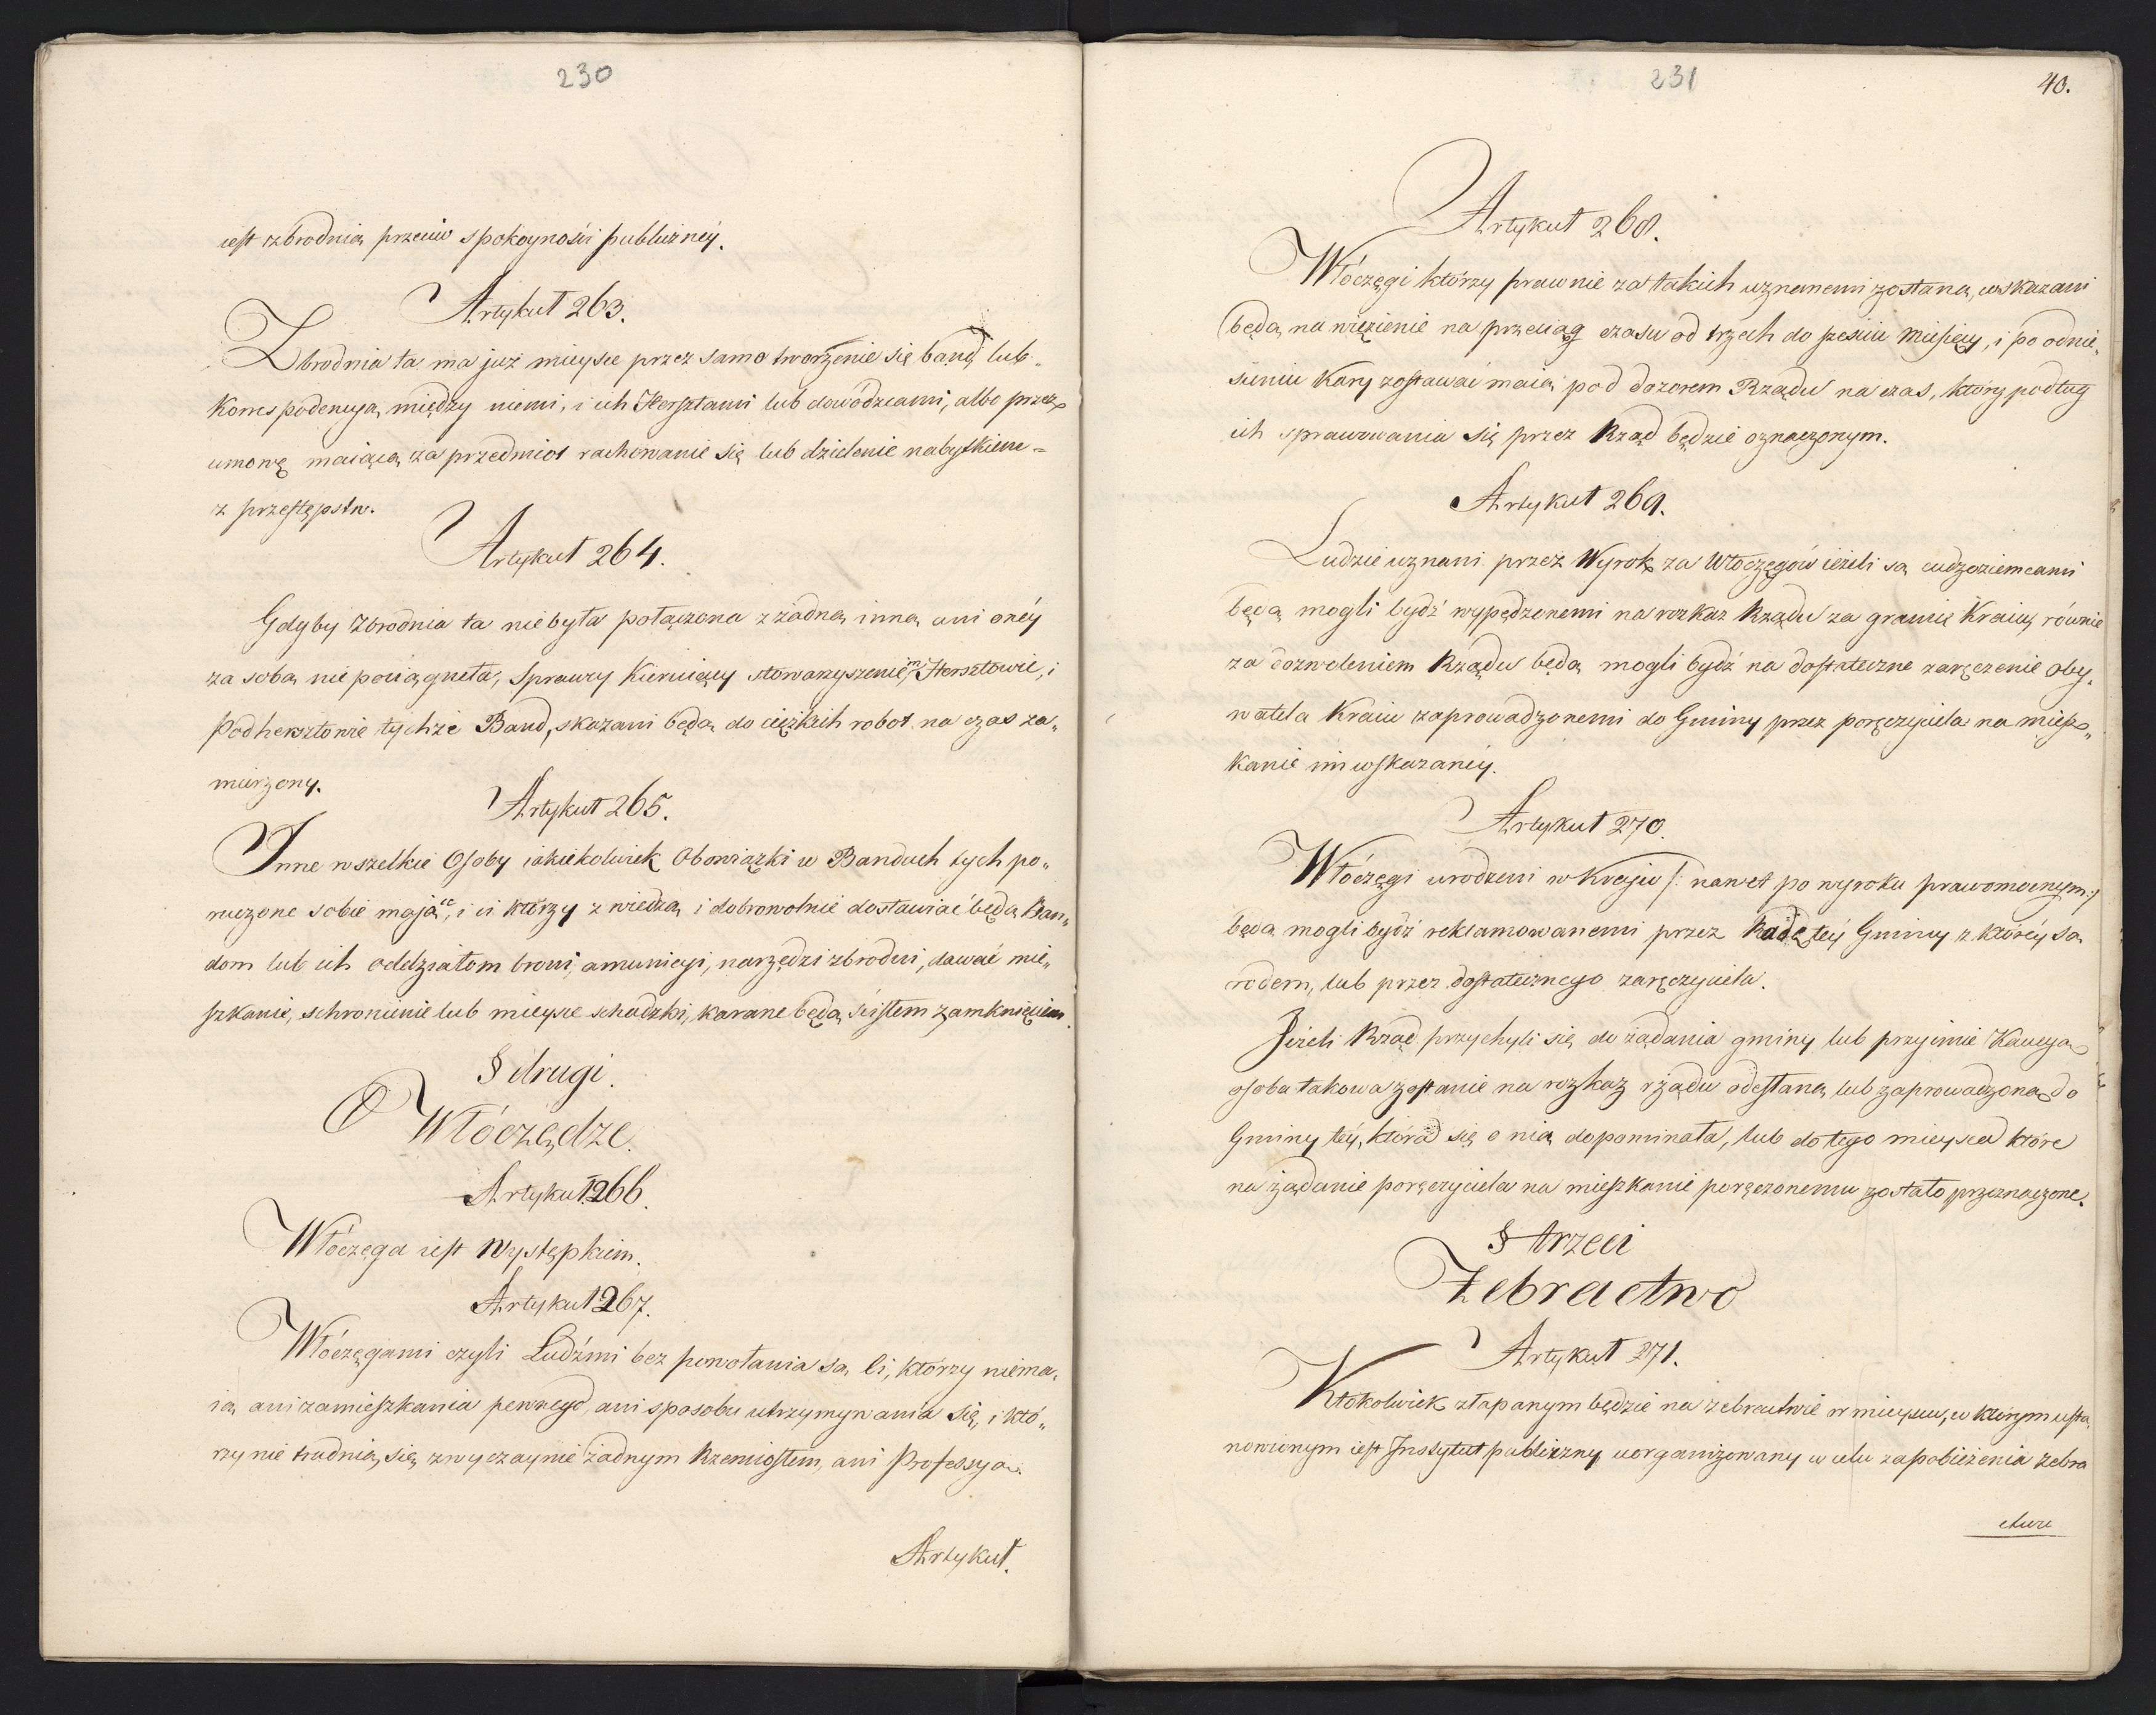 230
iest zbrodnią przeciw spokoyności publiczney.
Artykuł 263.
Zbrodnia ta ma już mieysce przez samo tworzenie się band, lub
Korrespodencyą między niemi, i ich Hersztami lub dowódzcami, albo przez
umowę maiącą za przedmiot rachowanie się lub dzielenie nabytkiem
z przestępstw.
Artykuł 264.
Gdyby zbrodnia ta nie była połączona z żadną inną ani oney
za sobą nie pociągneła, Sprawcy Kieruiący stowarzyszeniem, Hersztowie, i
Podhersztowie tychże Band, skazani będą do ciężkich robot na czas za„
mierzony.
Artykuł 265.
Inne wszelkie Osoby iakiekolwiek Obowiązki w Bandach tych po„
ruczone sobie mające, i ci którzy z wiedzą i dobrowolnie dostawiać będą Ban„
dom lub ich oddziałom broni, amunicyi, narzędzi zbrodni, dawać mie„
szkanie, schronienie lub mieysce schadzki, karane będą ścisłem zamknięciem.
§ drugi.
O Włóczędze.
Artykuł 266.
Włóczęga iest Występkiem.
Artykuł 267.
Włóczęgami czyli Ludźmi bez powołania są Ci, którzy niema„
ią ani zamieszkania pewnego, ani sposobu utrzymywania się, i któ„
rzy nie trudnią się zwyczaynie żadnym Rzemiosłem, ani Professyą.
Artykuł.
231
40.
Artykuł 268.
Włóczęgi którzy prawnie za takich uznanemi zostaną, wskazani
będą na więzienie na przeciąg czasu od trzech do sześciu Miesięcy, i po odnie„
sieniu Kary zostawać maią pod dozorem Rządu na czas, który podług
ich sprawowania się przez Rząd będzie oznaczonym.
Artykuł 269.
Ludzie uznani przez Wyrok za Włóczęgów ieżeli są cudzoziemcami
będą mogli bydź wypędzonemi na rozkaz Rządu za granicę Kraiu, równie
za dozwoleniem Rządu będą mogli bydź na dostateczne zaręczenie oby„
watela Kraiu zaprowadzonemi do Gminy przez poręczyciela na miesz„
kanie im wskazaney.
Artykuł 270.
Włóczęgi urodzeni w Kraju /: nawet po wyroku prawomocnym :/
będą mogli bydź reklamowanemi przez Radę tey Gminy z którey są
rodem, lub przez dostatecznego zaręczyciela.
Jeżeli Rząd przychyli się do żądania gminy lub przyimie Kaucyą
osoba takowa zostanie na rozkaz rządu odesłaną lub zaprowadzoną do
Gminy tey, która się o nią dopominała, lub do tego mieysca które
na żądanie poręczyciela na mieszkanie poręczonemu zostało przeznaczone.
§ trzeci
Żebractwo
Artykuł 271.
Ktokolwiek złapanym będzie na żebractwie w mieyscu, w którym usta„
nowionym iest Instytut publiczny uorganizowany w celu zapobieżenia żebra
ctwu